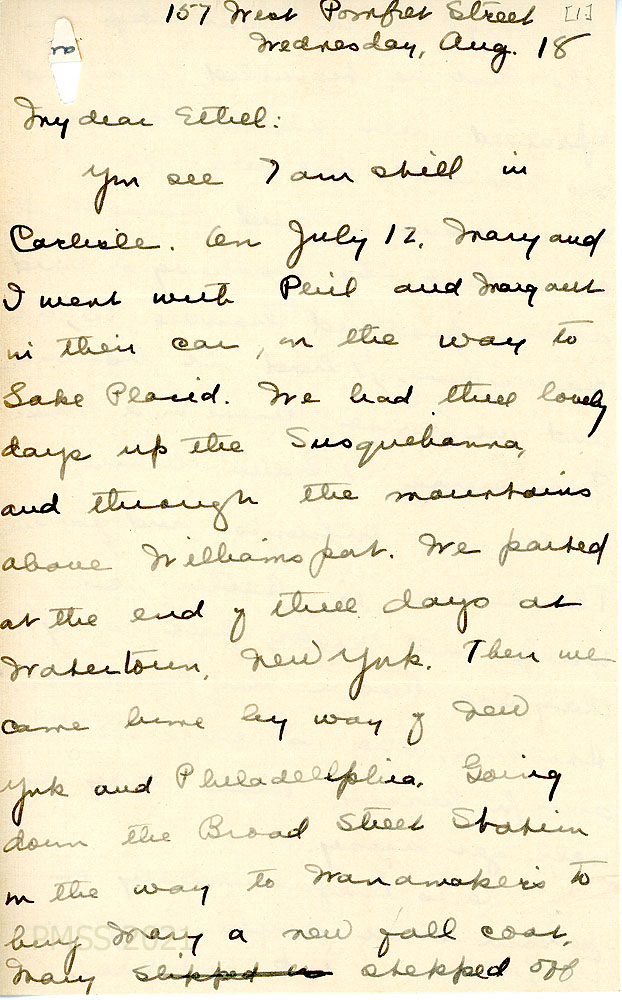 157 West Pomfret Street [1]
Wednesday, Aug. 18
My dear Ethel:
You see I am still in
Carlisle. On July 12, Mary and
I went with Phil and Margaret
in their car, on the way to
Lake Placid. We had three lovely
days up the Susquehanna,
and through the mountains
above Williamsport. We parted
at the end of three days at
Watertown, New York. Then we
came home by way of New
York and Philadelphia. Going
down the Broad Street Station
on the way to Wanamaker's to
buy Mary a new fall coat,
Mary slipped stepped off
PMSS 2021